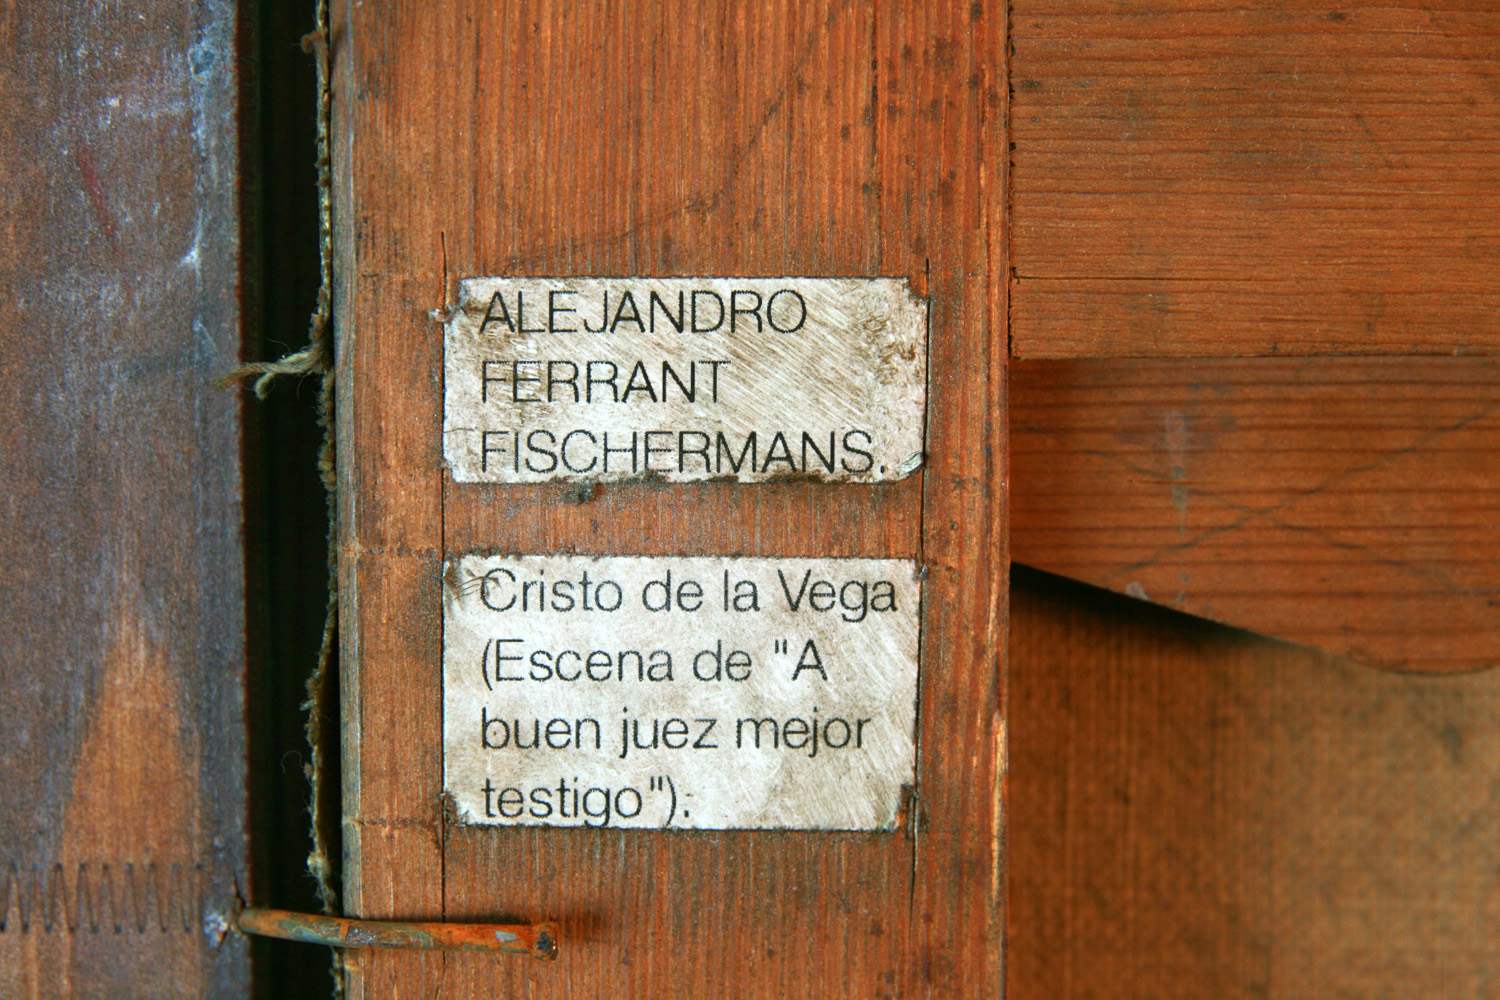 ALEJANDRO
FERRANT
FISCHERMANS.
Cristo de la Vega
(Escena de "A
buen juez mejor
testigo").